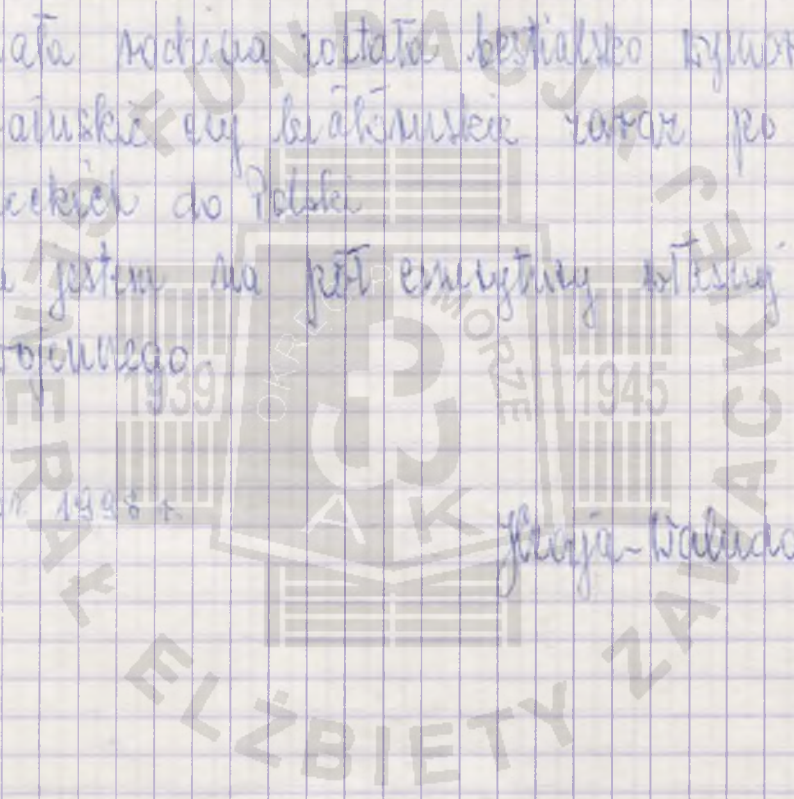 ała rodzina została bestialsko wymor
czy białoruskie zaraz po
ckich do Polski
jestem na pół emerytury
ojennego
1998 r.
FUNDACJA GENERAŁ ELŻBIETY ZAWACKIEJ
OKRĘG POMORZE
1939
1945
AK